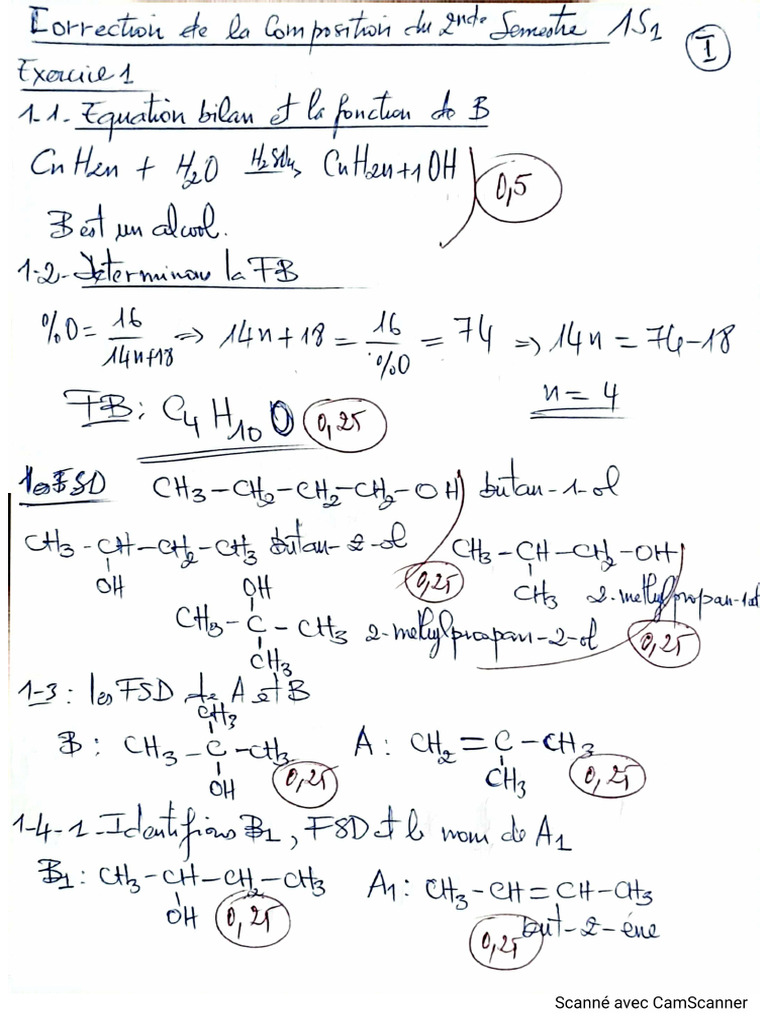 Correction de la Composition du 2nde Semestre 1S1 I
Exercice 1
1-1- Equation bilan et la fonction de B
CnH2n + H2O H2SO4→ CnH2n+1OH 0,5
B est un alcool.
1-2- Déterminons la FB
%O = 16/14n+18 => 14n+18 = 16/%O = 74 => 14n = 74-18
n = 4
FB: C4H10O 0,25
les FSD CH3-CH2-CH2-CH2-OH butan-1-ol
CH3-CH-CH2-CH3 butan-2-ol CH3-CH-CH2-OH
OH 0,25 CH3 2-methylpropan-1ol
OH
CH3-C-CH3 2-methylpropan-2-ol 0,25
CH3
1-3: les FSD de A et B
CH3
B: CH3-C-CH3 A: CH2=C-CH3
OH 0,25 CH3 0,25
1-4-1-Identifions B1, FSD et le nom de A1
B1: CH3-CH-CH2-CH3 A1: CH3-CH=CH-CH3
OH 0,25 0,25 but-2-ène
Scanné avec CamScanner